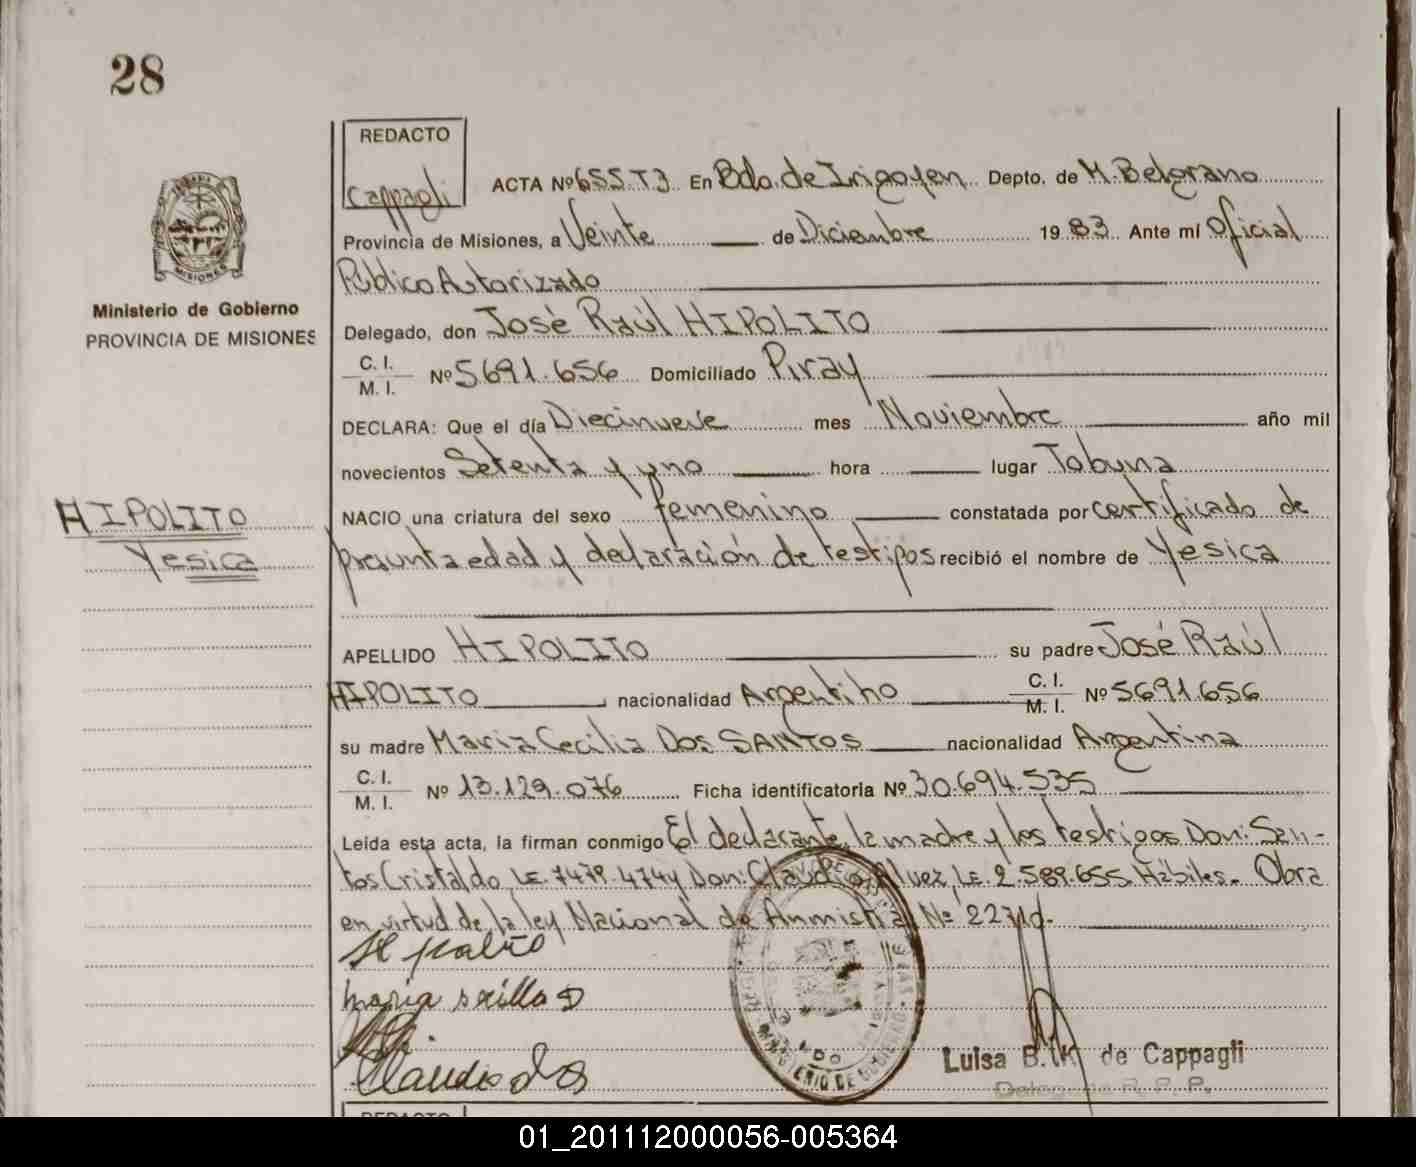 28
REDACTO
Cappagli
ACTA Nº 655.T3. En Bdo. de Irigoyen Depto. de M. Belgrano
Ministerio de Gobierno
PROVINCIA DE MISIONES
Provincia de Misiones, a Veinte de Diciembre 1983 Ante mí Oficial
Público Autorizado
Delegado, don José Raúl HIPOLITO
C. I.
M. I. Nº 5691.656 Domiciliado Piray
DECLARA: Que el día Diecinueve mes Noviembre año mil
novecientos Setenta y uno hora lugar Tobuna
HIPOLITO
Yesica
NACIO una criatura del sexo femenino constatada por certificado de
presunta edad y declaración de testigos recibió el nombre de Yésica
APELLIDO HIPOLITO su padre José Raúl
HIPOLITO nacionalidad Argentino C. I. M. I. Nº 5691.656
su madre María Cecilia Dos SANTOS nacionalidad Argentina
C. I.
M. I. Nº 13.129.076 Ficha identificatoria Nº 30.694.535
Leída esta acta, la firman conmigo El declarante, la madre y los testigos Don: San-
tos Cristaldo, LE. 7479.474 y Don: Claudio Alvez, LE. 2.589.655. Hábiles. Obra
en virtud de la ley Nacional de Anmistia Nº
MINISTERIO DE GOBIERNO
Claudio
Luisa B. K de Cappagli
Delegada R. P. P.
REDACTO
01_201112000056-005364